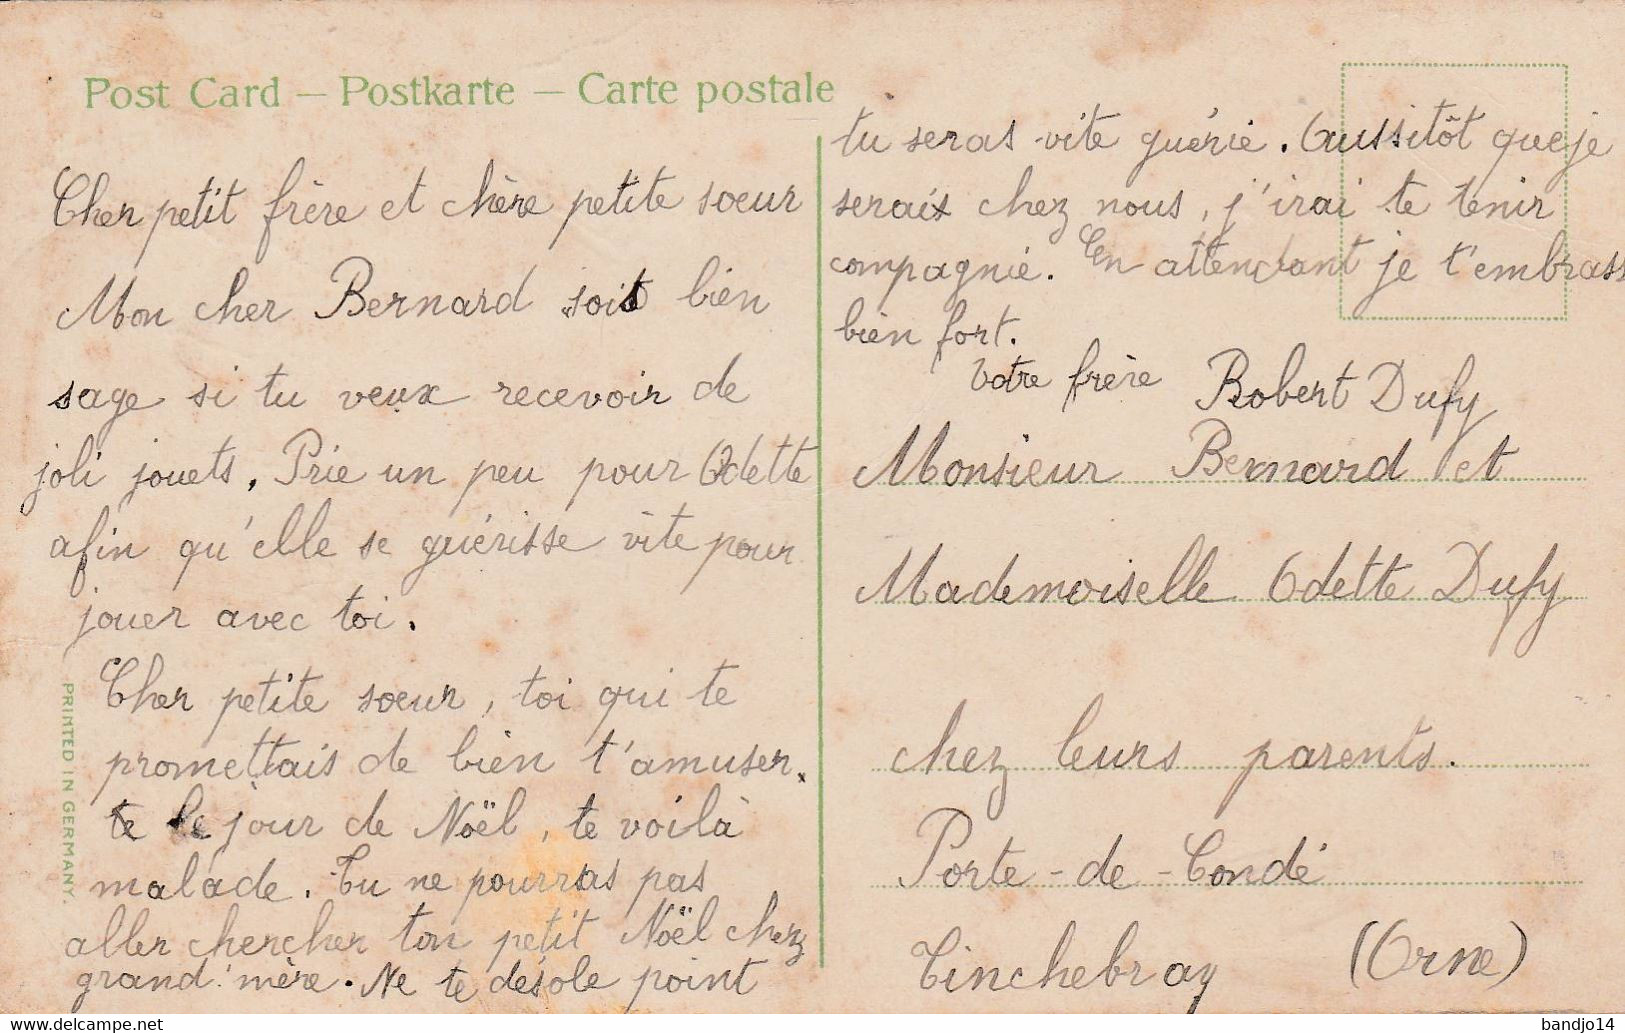 Post Card – Postkarte – Carte postale
Cher petit frère et chère petite soeur
Mon cher Bernard sois bien
sage si tu veux recevoir de
joli jouets. Prie un peu pour Odette
afin qu'elle se guérisse vite pour
jouer avec toi.
Cher petite soeur, toi qui te
promettais de bien t'amuser.
te le jour de Noël, te voilà
malade. Tu ne pourras pas
aller chercher ton petit Noël chez
grand'mère. Ne te désole point
PRINTED IN GERMANY.
tu seras vite guérie. Aussitôt que je
serais chez nous, j'irai te tenir
compagnie. En attendant je t'embrass
bien fort.
Votre frère Robert Dufy
Monsieur Bernard et
Mademoiselle Odette Dufy
chez leurs parents.
Porte-de-Condé
Tinchebray (Orne)
www.delcampe.net
bandjo14